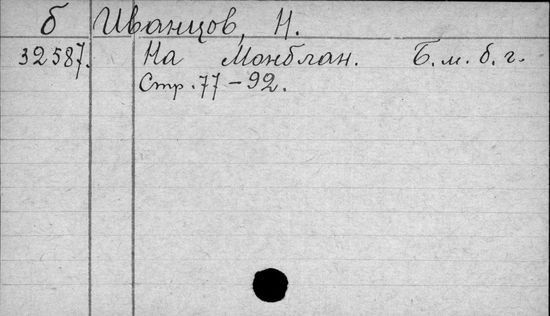 б Иванцов, Н.
32587. На Монблан. Б. м. б. г.
Стр. 77-92.